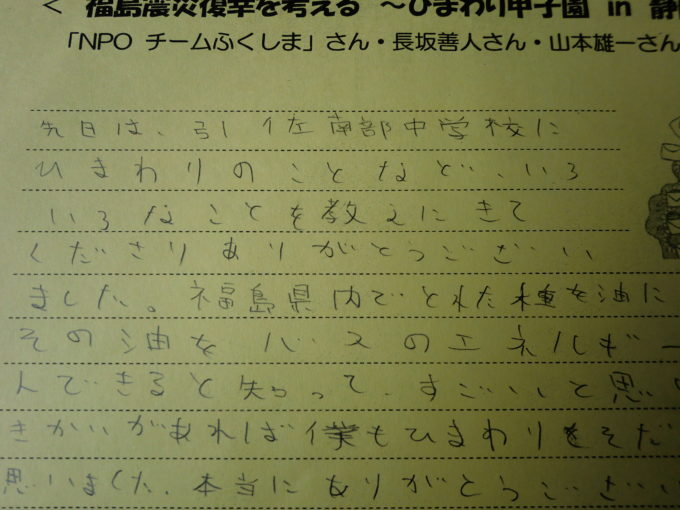 < 福島震災復幸を考える ~ひまわり甲子園 in 静
「NPO チームふくしま」さん・長坂善人さん・山本雄一さん
先日は、引佐南部中学校に
ひまわりのことなど、いろ
いろなことを教えにきて
くださりありがとうござい
ました。福島県内でとれた種を油に
その油をバスのエネルギー
んできると知って、すごいいと思
きかいがあれば僕もひまわりをそだ
思いました。本当にありがとうござい